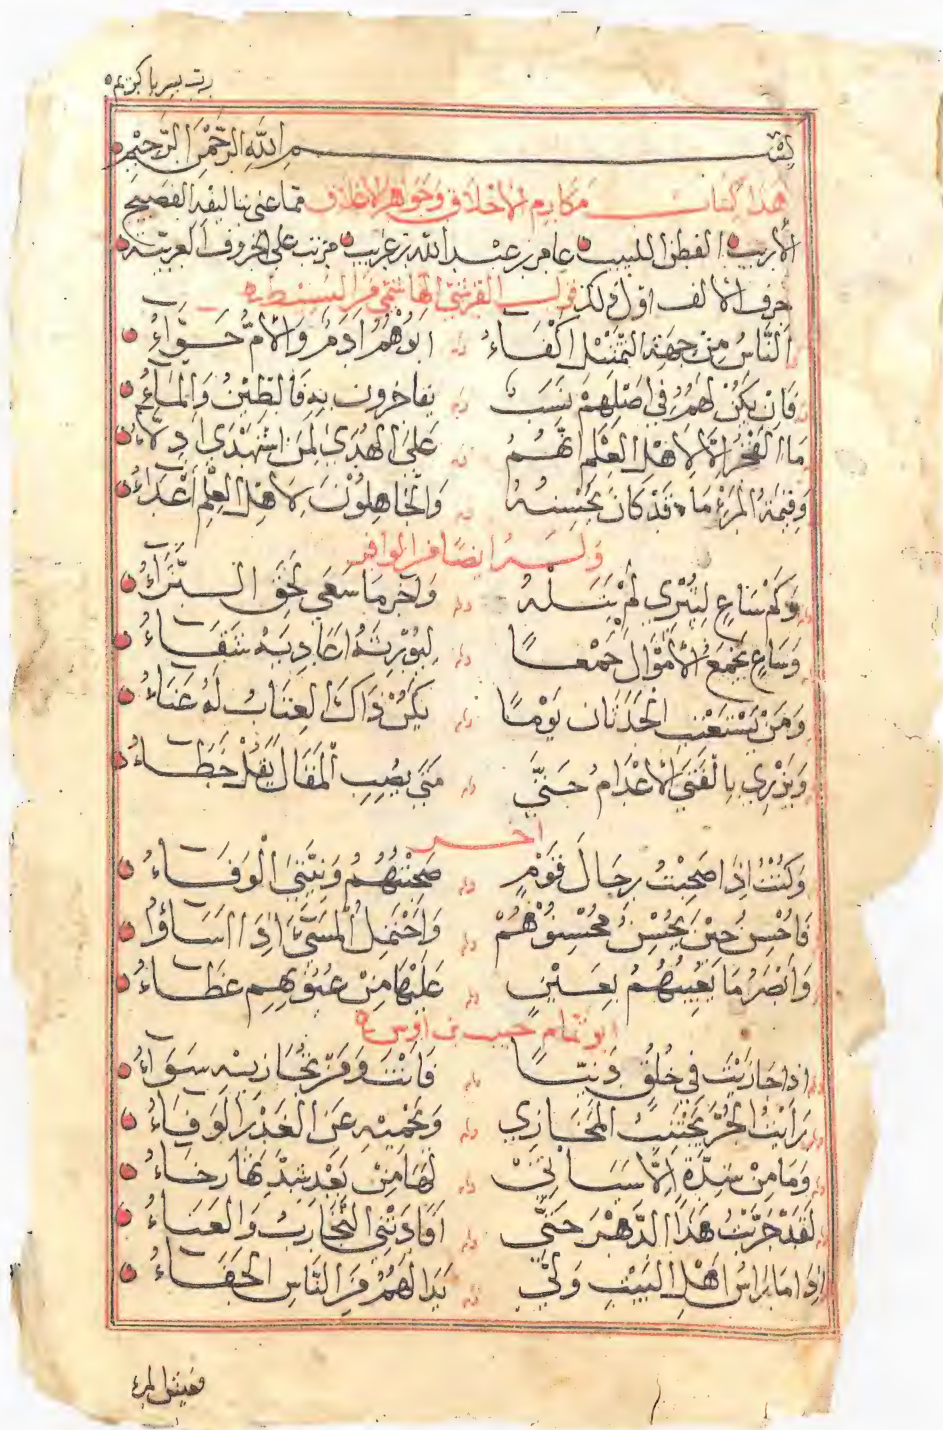 رب يسر يا كريم
بسم الله الرحمن الرحيم
هذا كتاب مكارم الأخلاق وجواهر الأعلاق مما عني بتاليفه الفصيح
الأريب الفطن اللبيب عامر بن عبد الله بن غريب مرتب على الحروف العربية
حرف الالف اول ذلك قول القرشي الهاشمي من البسيط
الناس من جهة التمثيل اكفاء ابوهم ادم والام حواء
فان يكن لهم في اصلهم نسب يفاخرون به فالطين والماء
ما الفخر الا لاهل العلم انهم على الهدى لمن استهدى ادلاء
وقيمة المرء ما قد كان يحسنه والجاهلون لاهل العلم اعداء
وله ايضا من الوافر
وكم ساع ليثري لم ينله واخر ما سعى لحق الثراء
وساع يجمع الأموال جمعا ليورثه اعاديه شقاء
ومن يستعتب الحدثان يوما يكن ذاك العتاب له عناء
ويزري بالفتى الاعدام حتى متى يصب المقال يقل خطاء
اخر
وكنت اذا صحبت رجال قوم صحبتهم ونيتي الوفاء
فاحسن حين يحسن محسنوهم واحتمل المسيء اذا اساؤا
وابصر ما يعيبهم بعين عليها من عيوبهم غطاء
ابو تمام حبيب بن اوس
اذا جاريت في خلق دنيا فانت ومن تجاريه سواء
رايت الحر يجتنب المخازي ويحميه عن الغدر الوفاء
وما من شدة الا سياتي لها من بعد شدتها رخاء
لقد جربت هذا الدهر حتى افادتني التجارب والعناء
اذا ما راس اهل البيت ولى بدا لهم من الناس الجفاء
يعيش المرء